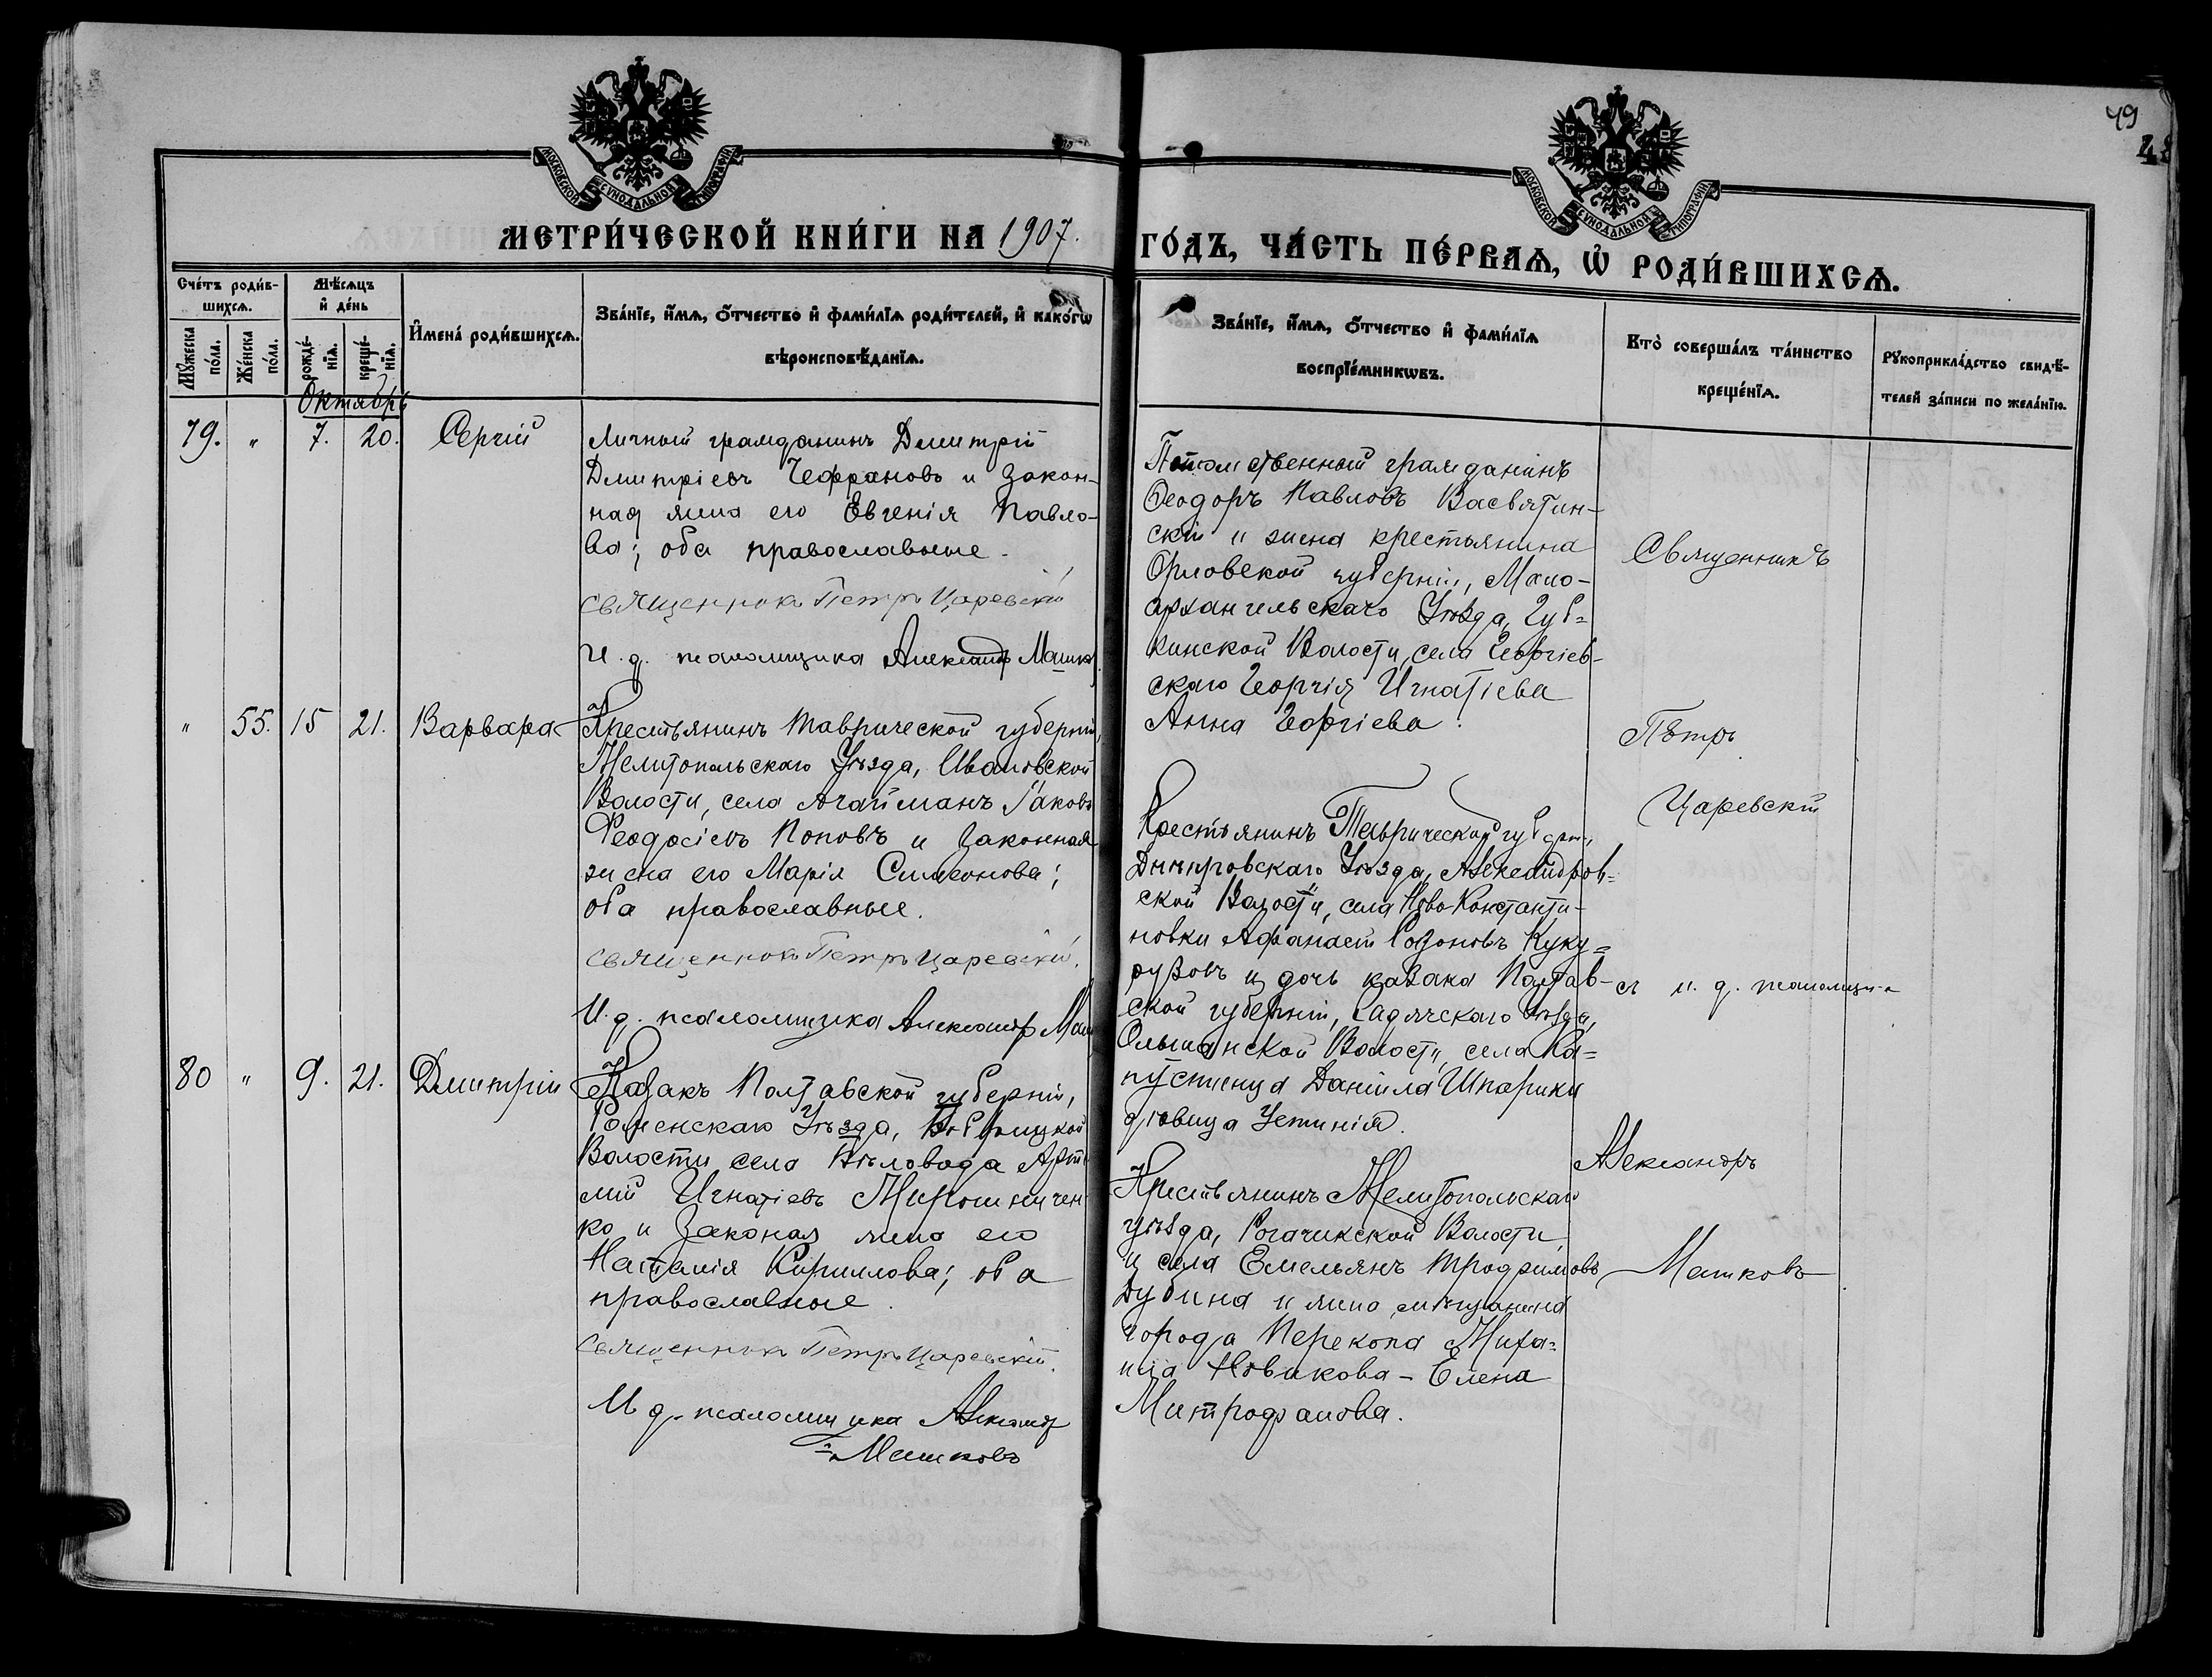 49
МОСКОВСКОЙ СѴНОДАЛЬНОЙ ТИПОГРАФІИ
МОСКОВСКОЙ СѴНОДАЛЬНОЙ ТИПОГРАФІИ
МЕТРИ́ЧЕСКОЙ КНИ́ГИ НА 1907.
ГО́ДЪ, ЧА́СТЬ ПЕ́РВАѦ, Ѡ҆ РОДИ́ВШИХСѦ.
Сче́тъ роди́в-
шихсѧ.
Мꙋ́жеска по́ла.
Же́нска по́ла.
Мѣ́сѧцъ
и҆ де́нь
рожде́-
нїѧ.
креще́-
нїѧ.
И҆мена̀ роди́вшихсѧ.
Зва́нїе, и҆́мѧ, ѻ҆́тчество и҆ фами́лїѧ роди́телей, и҆ како́гѡ
вѣроисповѣ́данїѧ.
Зва́нїе, и҆́мѧ, ѻ҆́тчество и҆ фами́лїѧ
воспрїе́мникѡвъ.
Кто̀ соверша́лъ та́инство
креще́нїѧ.
Рꙋкоприкла́дство свидѣ́-
телей за́писи по жела́нїю.
Октябрь
79. " 7. 20. Сергій
Личный гражданинъ Димитрій
Димитріевъ Чефрановъ и закон-
ная жена его Евгенія Павло-
ва; оба православные.
Священникъ Петръ Царевскій
И. д. псаломщика Александръ Машков
Потомственный гражданинъ
Ѳеодоръ Павловъ Васвятин-
скій и жена крестьянина
Орловской губерніи, Мало-
архангельскаго Уѣзда, Губ=
кинской Волости, села Георгіев-
скаго Георгія Игнатіева
Анна Георгіева.
Священникъ
Пѣтръ
Царевскій
" 55. 15 21. Варвара
Крестьянинъ Таврической губерніи,
Мелитопольскаго Уѣзда, Ивановской
Волости, села Агайманъ Іаковъ
Ѳеодосіевъ Поповъ и законная
жена его Марія Симеонова;
оба православные.
Священникъ Петръ Царевскій.
И. д. псаломщика Александр Маш
Крестьянинъ Таврической губерн.,
Днѣпровскаго Уѣзда, Александров=
ской Волости, села Ново-Константи-
новки Афанасій Созоновъ Куку=
рузовъ и дочь казака Полтав-
ской губерніи, Гадячскаго Уѣзда,
Ольшанской Волости, села Ка=
пустенца Даніила Шпарики
дѣвица Устинія.
съ и. д. псаломщика
Александръ
Машковъ
80 " 9. 21. Димитрій
Казакъ Полтавской губерніи,
Роменскаго Уѣзда,
Волости села Бѣловода Арте
мій Игнатіевъ Мирошничен
ко и законая жена его
Наталія Кириллова; оба
православные.
Священникъ Петръ Царевскій.
И д. псаломщика Александр
Машковъ
Крестьянинъ Мелитопольскаго
уѣзда, Рогачикской Волости
и села Емельянъ Трофимовъ
Дубина и жена мѣщанина
города Перекопа Миха=
ила Новикова - Елена
Митрофанова.